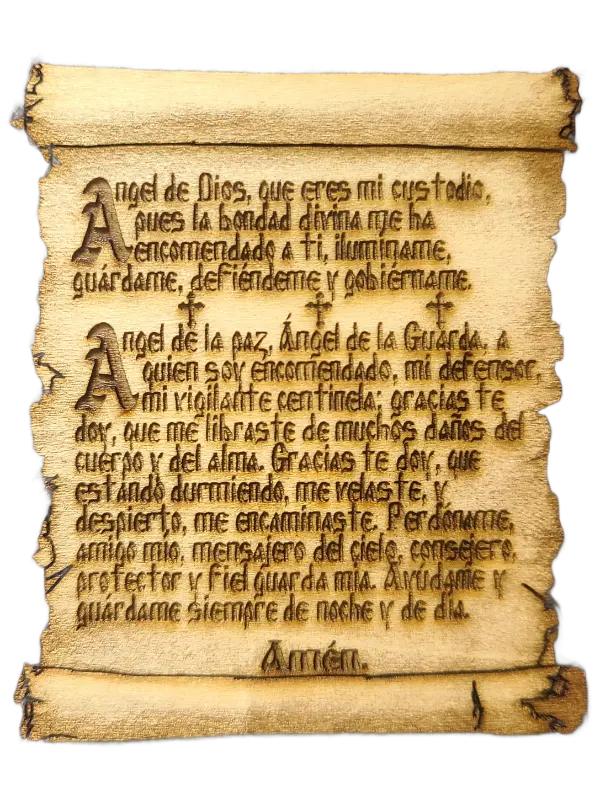 Angel de Dios, que eres mi custodio,
pues la bondad divina me ha
encomendado a ti, ilumíname,
guárdame, defiéndeme y gobiérname.
Angel de la paz, Ángel de la Guarda, a
quien soy encomendado, mi defensor,
mi vigilante centinela; gracias te
doy, que me libraste de muchos daños del
cuerpo y del alma. Gracias te doy, que
estando durmiendo, me velaste, y
despierto, me encaminaste. Perdóname,
amigo mío, mensajero del cielo, consejero,
protector y fiel guarda mía. Ayúdame y
guárdame siempre de noche y de día.
Amén.